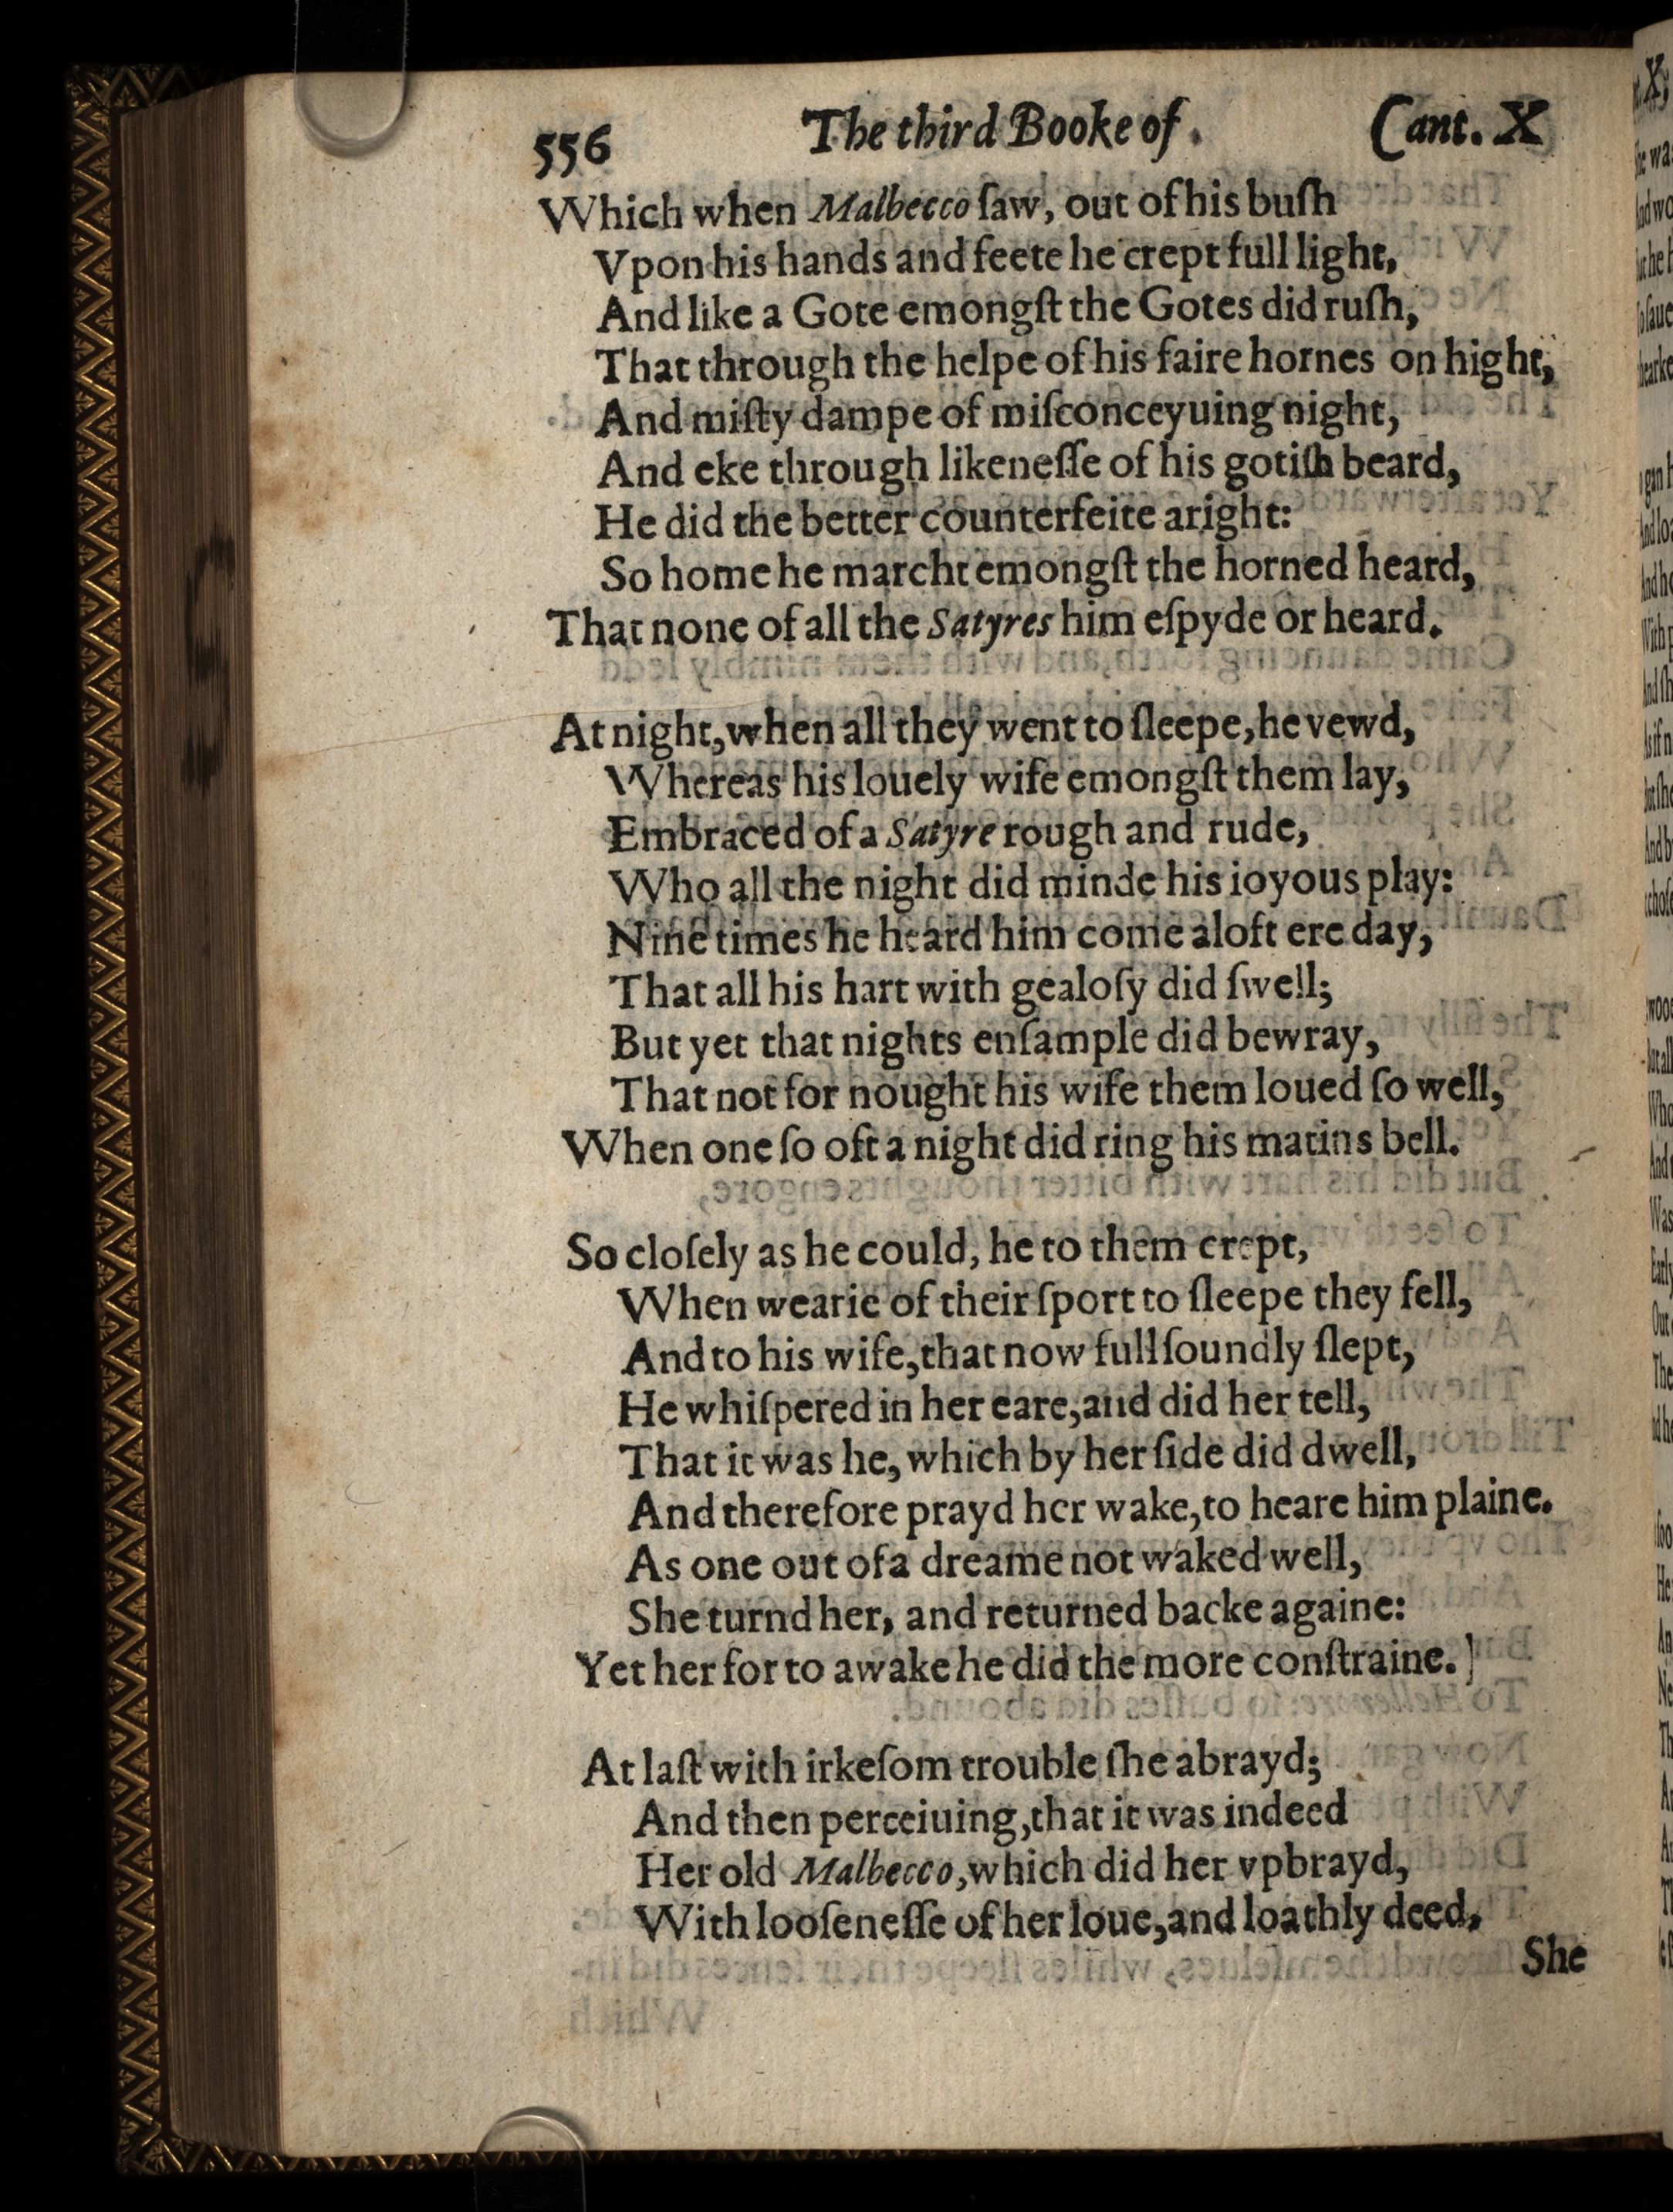 556 The third Booke of. Cant. X
Which when Malbecco ſaw, out of his buſh
Vpon his hands and feete he crept full light,
And like a Gote emongſt the Gotes did ruſh,
That through the helpe of his faire hornes on hight,
And miſty dampe of miſconceyuing night,
And eke through likeneſſe of his gotiſh beard,
He did the better counterfeite aright:
So home he marcht emongſt the horned heard,
That none of all the Satyres him eſpyde or heard.
At night, when all they went to ſleepe, he vewd,
Whereas his louely wife emongſt them lay,
Embraced of a Satyre rough and rude,
Who all the night did minde his ioyous play:
Nine times he heard him come aloft ere day,
That all his hart with gealoſy did ſwell;
But yet that nights enſample did bewray,
That not for nought his wife them loued ſo well,
When one ſo oft a night did ring his matins bell.
So cloſely as he could, he to them crept,
When wearie of their ſport to ſleepe they fell,
And to his wife, that now full ſoundly ſlept,
He whiſpered in her eare, and did her tell,
That it was he, which by her ſide did dwell,
And therefore prayd her wake, to heare him plaine.
As one out of a dreame not waked well,
She turnd her, and returned backe againe:
Yet her for to awake he did the more conſtraine.]
At laſt with irkeſom trouble ſhe abrayd;
And then perceiuing, that it was indeed
Her old Malbecco, which did her vpbrayd,
With looſeneſſe of her loue, and loathly deed,
She